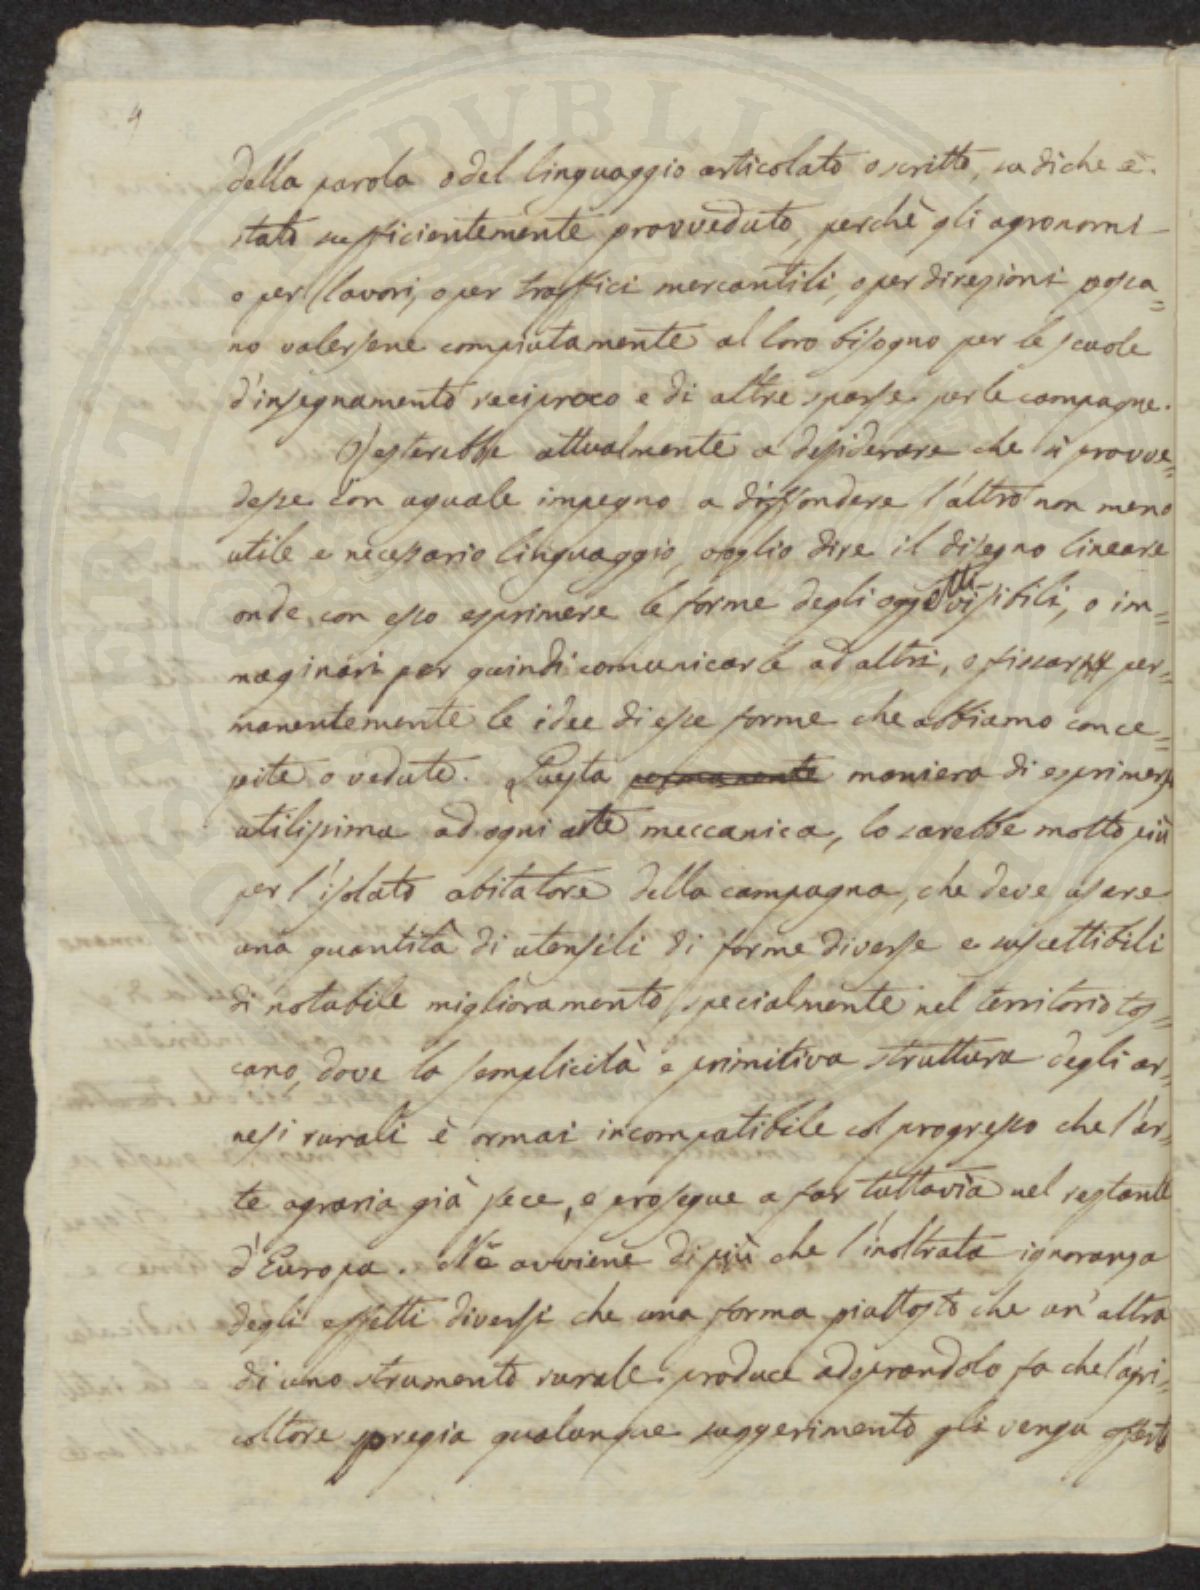 4
della parola o del linguaggio articolato o scritto, su di che è
stato sufficientemente provveduto, perchè gli agronomi
o per lavori, o per traffici mercantili, o per direzioni possa=
no valersene compiutamente al loro bisogno per le scuole
d'insegnamento reciproco e di altre sparse per le campagne.
Resterebbe attualmente a desiderare che si provve=
desse con eguale impegno a diffondere l'altro non meno
utile e necessario linguaggio, voglio dire il disegno lineare
onde con esso esprimere le forme degli oggetti visibili, o im=
maginari per quindi comunicarle ad altri, o fissare per=
manentemente le idee di esse forme che abbiamo conce=
pite o vedute. Questa permanente maniera di esprimersi
utilissima ad ogni arte meccanica, lo sarebbe molto più
per l'isolato abitatore della campagna, che deve usare
una quantità di utensili di forme diverse e suscettibili
di notabile miglioramento, specialmente nel territorio tos=
cano, dove la semplicità e primitiva struttura degli ar=
nesi rurali è ormai incompatibile col progresso che l'ar=
te agraria già fece, e prosegue a far tuttavia nel restante
d'Europa. Ne avviene di più che l'inoltrata ignoranza
degli effetti diversi che una forma piuttosto che un'altra
di uno strumento rurale produce adoprandolo fa che l'agri=
coltore spregia qualunque suggerimento gli venga offerto